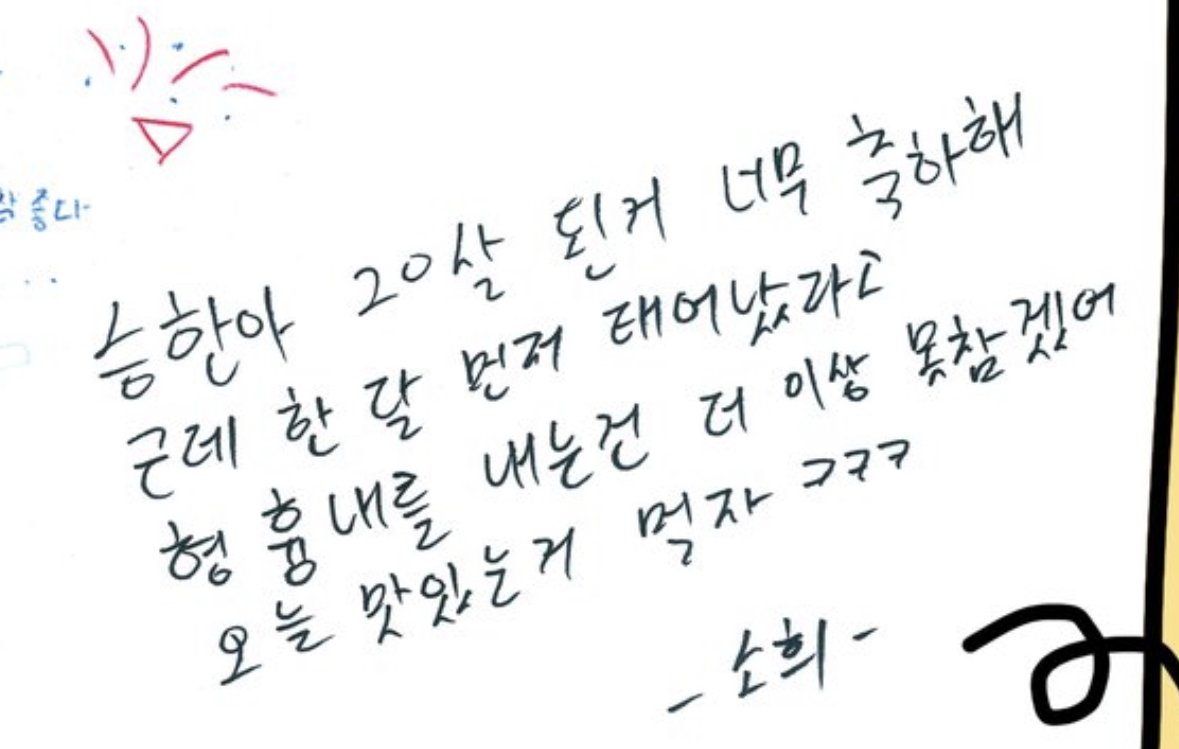 좋다
승한아 20살 된거 너무 축하해
근데 한 달 먼저 태어났다고
형 흉내를 내는건 더 이상 못참겠어
오늘 맛있는거 먹자 ㅋㅋㅋ
- 소희 -